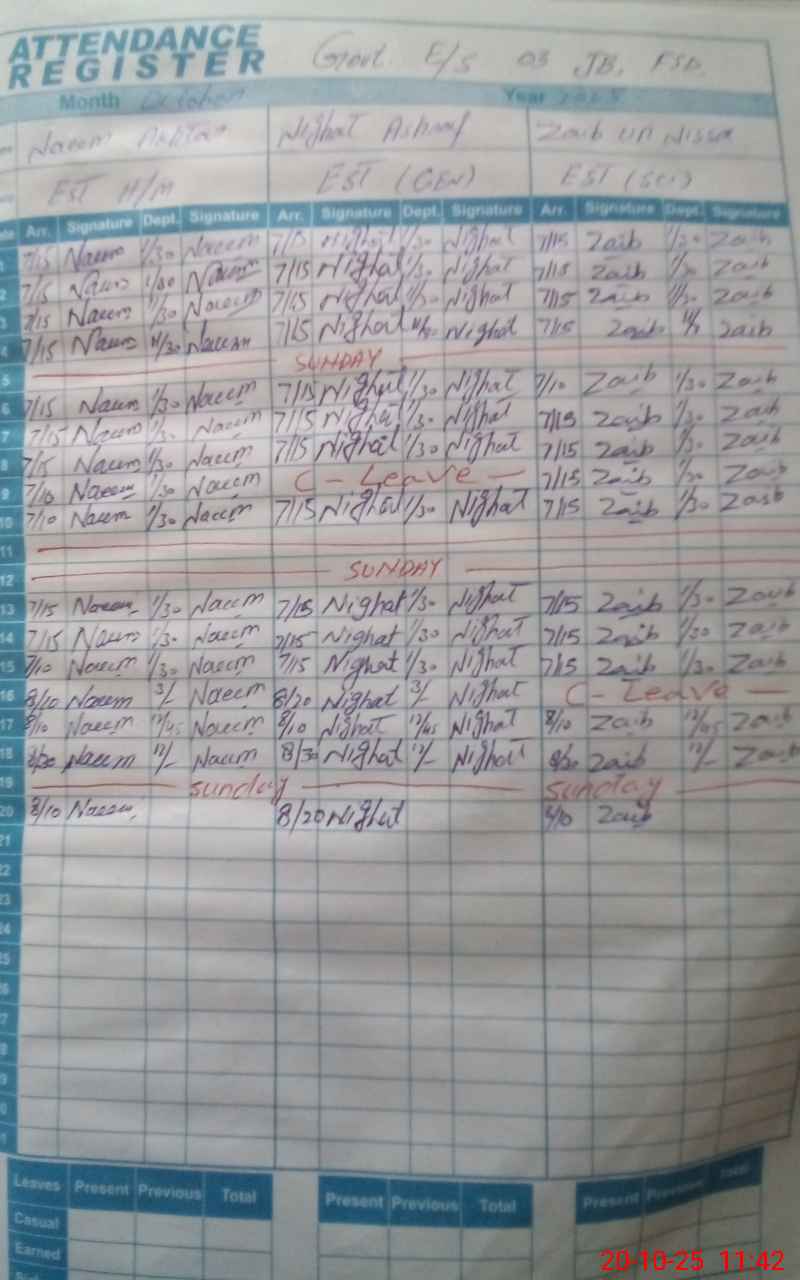 ATTENDANCE REGISTER Govt. E/S 03 JB, FSD.
Month October Year 2025
Naeem Nighat Ashraf Zaib un Nissa
EST H/M EST (GEN) EST (SCI)
Arr. Signature Dept. Signature Arr. Signature Dept. Signature Arr. Signature Dept. Signature
1 7/15 Naeem 1/30 Naeem 7/15 Nighat 1/30 Nighat 7/15 Zaib 1/30 Zaib
2 7/15 Naeem 1/30 Naeem 7/15 Nighat 1/30 Nighat 7/15 Zaib 1/30 Zaib
3 7/15 Naeem 1/30 Naeem 7/15 Nighat 1/30 Nighat 7/15 Zaib 1/30 Zaib
4 7/15 Naeem 11/30 Naeem 7/15 Nighat 11/30 Nighat 7/15 Zaib Zaib
5 SUNDAY
6 7/15 Naeem 1/30 Naeem 7/15 Nighat 1/30 Nighat 7/10 Zaib 1/30 Zaib
7 7/15 Naeem 1/30 Naeem 7/15 Nighat 1/30 Nighat 7/15 Zaib 1/30 Zaib
8 7/15 Naeem 1/30 Naeem 7/15 Nighat 1/30 Nighat 7/15 Zaib 1/30 Zaib
9 7/10 Naeem 1/30 Naeem C - Leave - 7/15 Zaib 1/30 Zaib
10 7/10 Naeem 1/30 Naeem 7/15 Nighat 1/30 Nighat 7/15 Zaib 1/30 Zaib
11
12 SUNDAY
13 7/15 Naeem 1/30 Naeem 7/15 Nighat 1/30 Nighat 7/15 Zaib 1/30 Zaib
14 7/15 Naeem 1/30 Naeem 7/15 Nighat 1/30 Nighat 7/15 Zaib 1/30 Zaib
15 7/10 Naeem 1/30 Naeem 7/15 Nighat 1/30 Nighat 7/15 Zaib 1/30 Zaib
16 8/10 Naeem 3/- Naeem 8/20 Nighat 3/- Nighat C - Leave -
17 8/10 Naeem 12/45 Naeem 8/10 Nighat 12/45 Nighat 8/10 Zaib 12/45 Zaib
18 8/30 Naeem 12/- Naeem 8/30 Nighat 12/- Nighat 8/30 Zaib 12/- Zaib
19 sunday sunday
20 8/10 Naeem 8/20 Nighat 8/10 Zaib
21
22
23
24
25
Leaves Present Previous Total Present Previous Total Present Previous Total
Casual
Earned
20-10-25 11:42